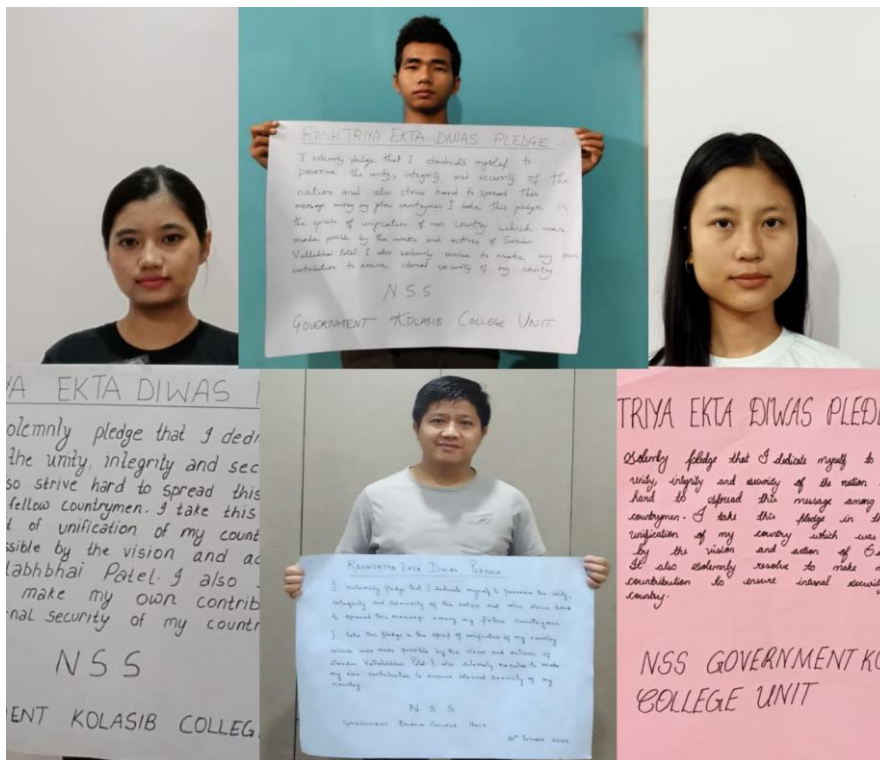 RASHTRIYA EKTA DIWAS PLEDGE
I solemnly pledge that I dedicate myself to
preserve the unity, integrity and security of the
nation and also strive hard to spread this
message among my countrymen I take this pledge in
the of unification of country which was
made by the and actions of Sardar
Vallabhbhai Patel I also solemnly resolve to make my own
contribution to ensure internal security of my country
N.S.S
GOVERNMENT KOLASIB COLLEGE UNIT
YA EKTA DIWAS
olemnly pledge that I dedi
the unity, integrity and sec
so strive hard to spread this
fellow countrymen. I take this
t of unification of my count
ssible by the vision and ac
labhbhai Patel. I also
make my own contrib
nal security of my countr
NSS
ENT KOLASIB COLLEG
RASHTRIYA EKTA DIWAS PLEDGE
I solemnly pledge that I dedicate myself to preserve the unity,
integrity and security of the nation and also strive hard
to spread this message among my fellow countrymen
I take this pledge in the spirit of unification of my country
which was made possible by the vision and actions of
Sardar Vallabhbhai Patel I also solemnly resolve to make
my own contribution to ensure internal security of my
country
N.S.S
GOVERNMENT KOLASIB COLLEGE UNIT
TRIYA EKTA DIWAS PLED
Solemly pledge that I dedicate myself to
unity, integrity and security of the nation
hard to spread this message among
countrymen. I take this pledge in th
unification of my country which was
by the vision and action of
It also solemnly resolve to make m
contribution to ensure internal securit
country.
NSS GOVERNMENT KO
COLLEGE UNIT